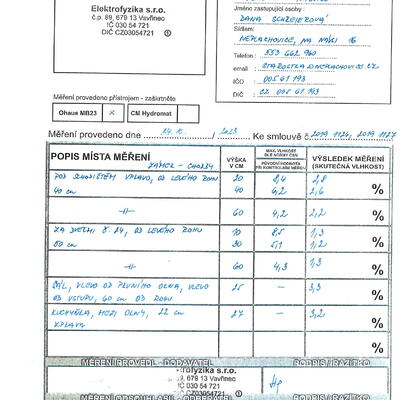 Elektrofyzika s.r.o.
č.p. 89, 679 13 Vavřinec
IČ 030 54 721
DIČ CZ03054721
Jméno zastupující osoby :
DANA SCHREIEROVÁ
Sídlem:
NEPLACHOVICE, NA NÁVSI 16
Telefon : 553 662 960
email : STAROSTKA@NEPLACHOVICE.CZ
IČO : 005 61 193
DIČ : CZ 005 61 193
Měření provedeno přístrojem - zaškrtněte
Ohaus MB23 x CM Hydromat
Měření provedeno dne 24.10. / 2023 Ke smlouvě č. 2019 1126, 2019 1127
POPIS MÍSTA MĚŘENÍ VÝŠKA V CM MAX. VLHKOST DLE NORMY ČSN PŮVODNÍ HODNOTA PŘI KONTROLNÍM MĚŘENÍ VÝSLEDEK MĚŘENÍ (SKUTEČNÁ VLHKOST)
ZÁMEK - CHODBY
POD SCHODIŠTĚM VPRAVO, OD LEVÉHO ROHU 20 8,4 2,8
40 cm 40 4,2 2,6 %
-//- 60 4,2 2,2 %
ZA DVEŘMI Č. 24, OD LEVÉHO ROHU 10 8,5 1,3
80 cm 30 5,1 1,2 %
-//- 60 4,3 1,3 %
VLEVO OD PRVNÍHO OKNA, VLEVO 25 — 3,3
OD VSTUPU, 60 cm OD ROHU %
KUCHYŇKA, MEZI OKNY, 22 cm 27 — 3,2
VPRAVO %
%
MĚŘENÍ PROVEDL - DODAVATEL PODPIS / RAZÍTKO
s.r.o.
89, 679 13 Vavřinec
030 54 721
CZ03054721
MĚŘENÍ ODSOUHLASIL - ODBĚRATEL PODPIS / RAZÍTKO